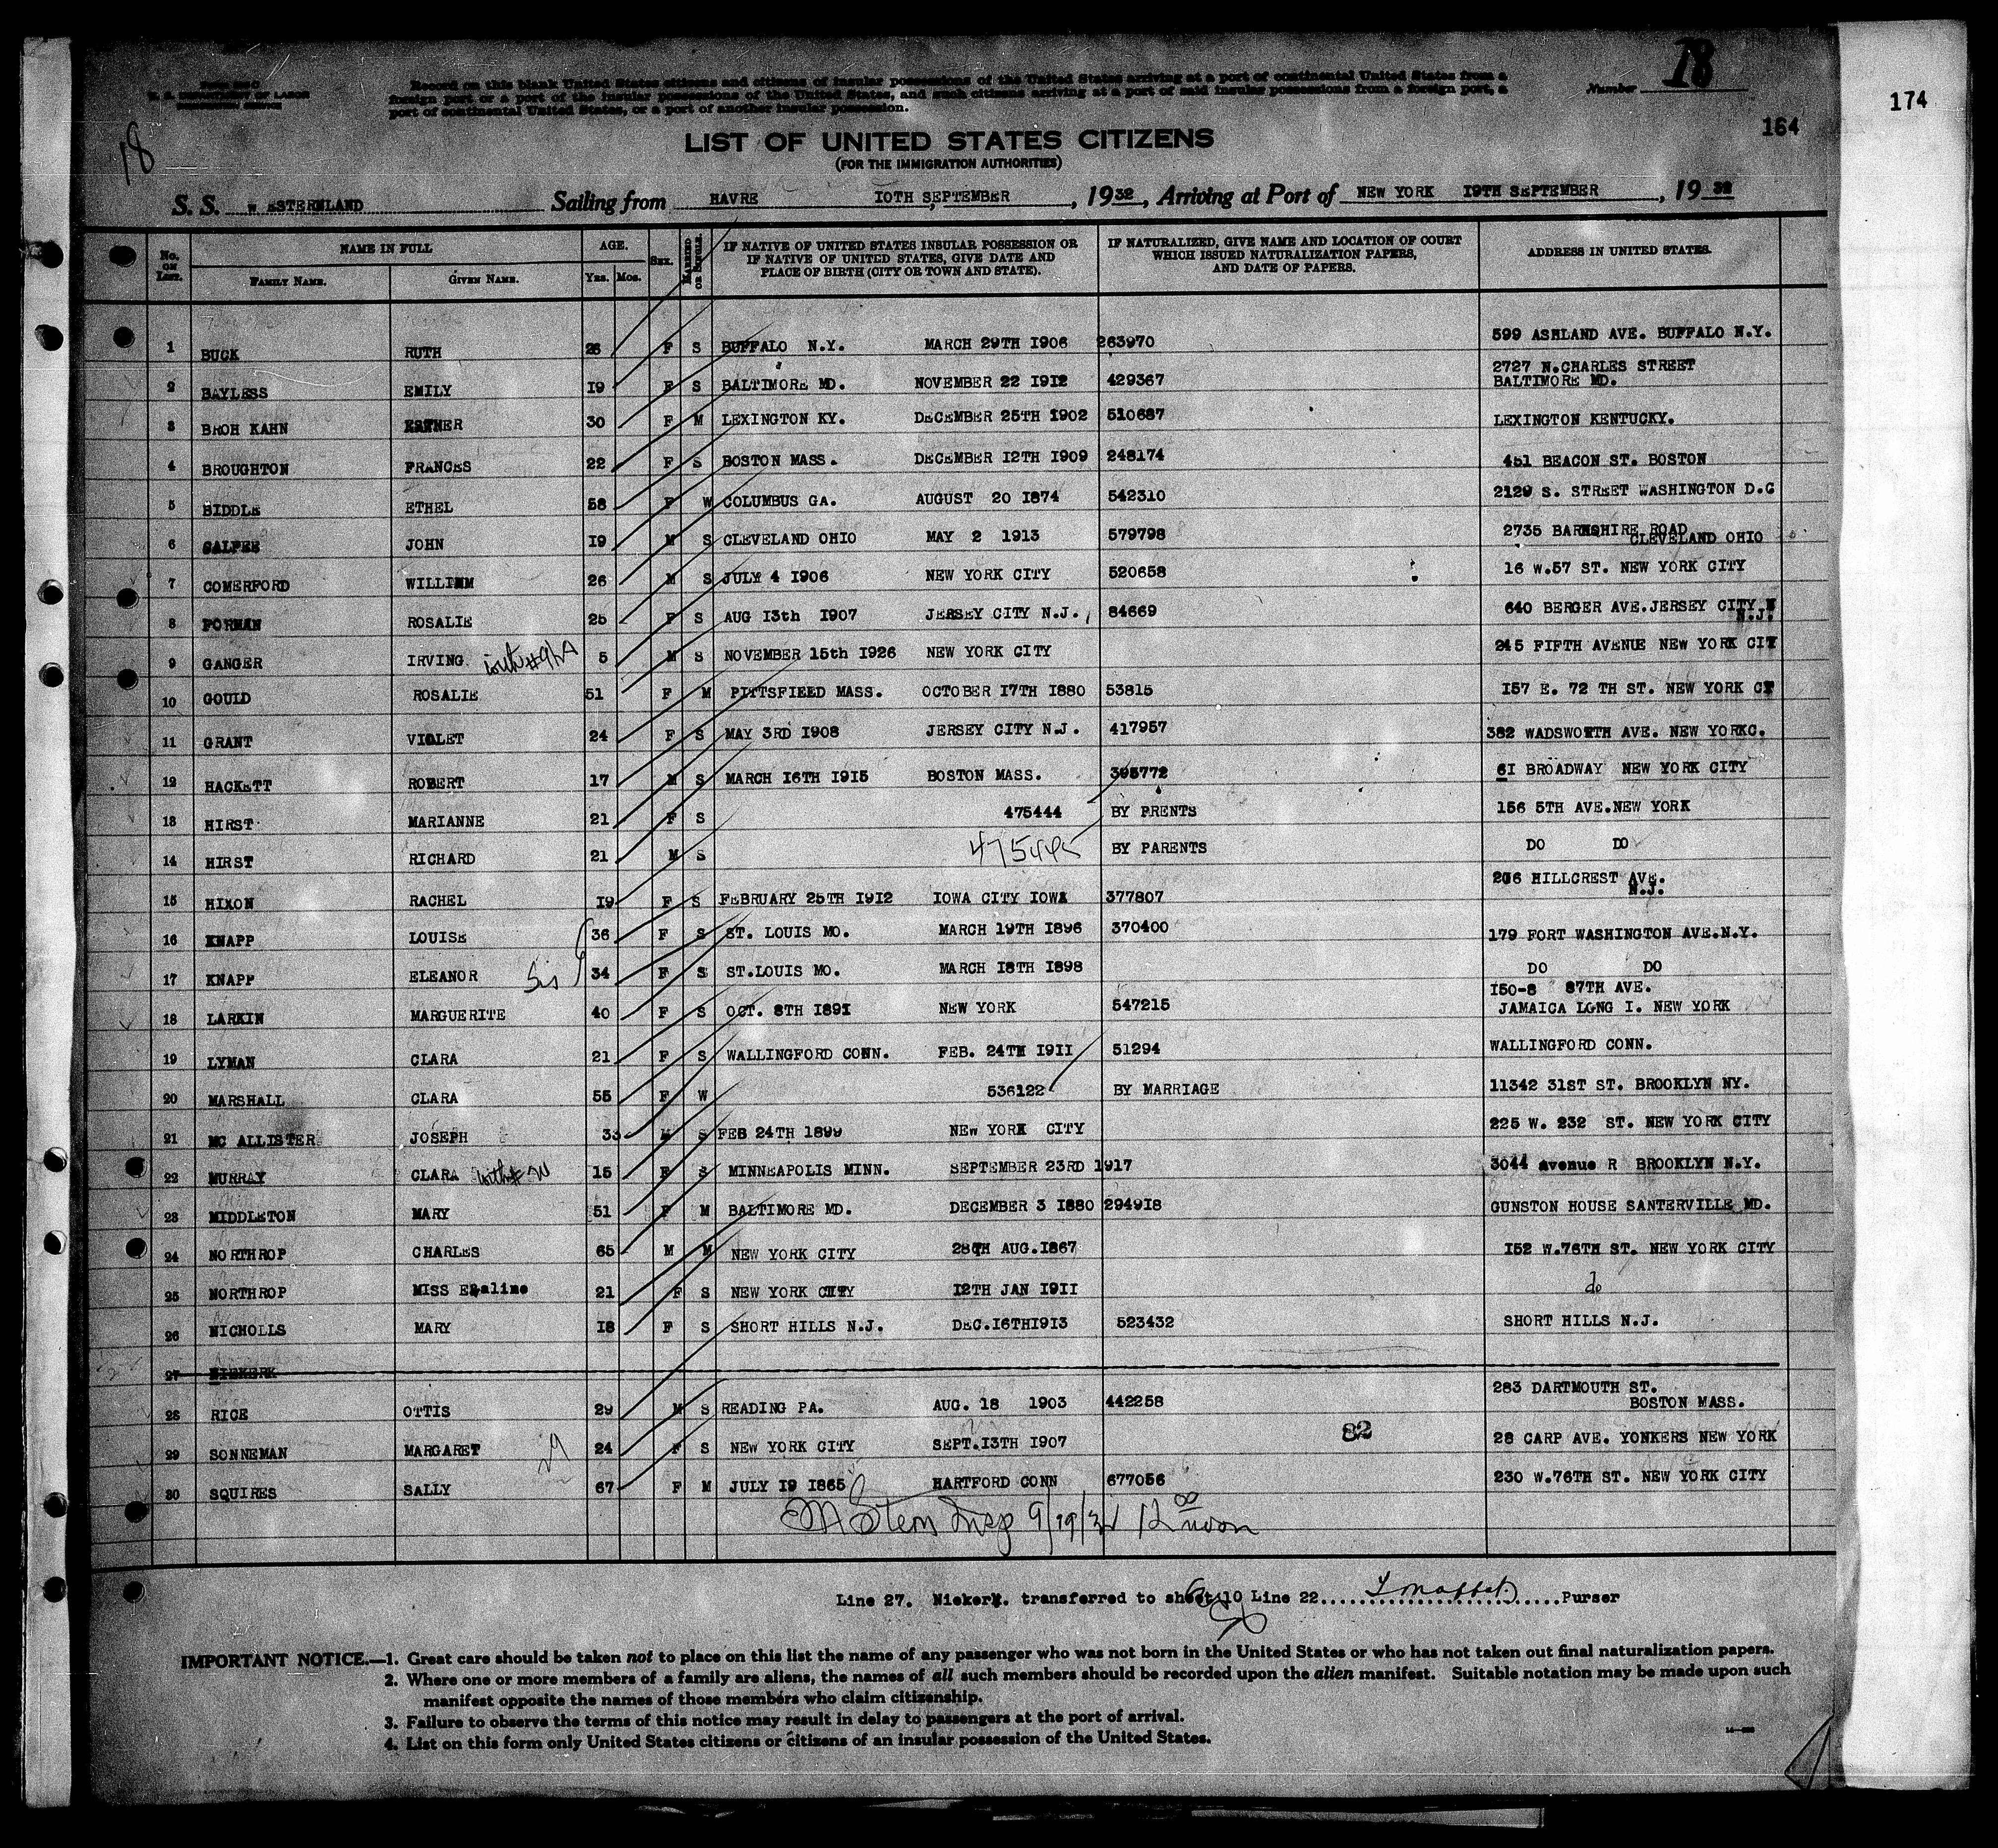 U. S. DEPARTMENT OF LABOR
IMMIGRATION SERVICE
Record on this blank United States citizens and citizens of insular possessions of the United States arriving at a port of continental United States from a
foreign port or a port of the insular possessions of the United States, and such citizens arriving at a port of said insular possessions from a foreign port, a
port of continental United States, or a port of another insular possession.
Number 18
174
164
18
LIST OF UNITED STATES CITIZENS
(FOR THE IMMIGRATION AUTHORITIES)
S. S. W ESTERNLAND Sailing from HAVRE IOTH SEPTEMBER, 1932, Arriving at Port of NEW YORK I9TH SEPTEMBER, 1932
No. ON LIST. NAME IN FULL AGE. SEX. MARRIED OR SINGLE. IF NATIVE OF UNITED STATES INSULAR POSSESSION OR IF NATIVE OF UNITED STATES, GIVE DATE AND PLACE OF BIRTH (CITY OR TOWN AND STATE). IF NATURALIZED, GIVE NAME AND LOCATION OF COURT WHICH ISSUED NATURALIZATION PAPERS, AND DATE OF PAPERS. ADDRESS IN UNITED STATES.
FAMILY NAME. GIVEN NAME. YRS. MOS.
1 BUCK RUTH 26 F S BUFFALO N.Y. MARCH 29TH I906 263970 599 ASHLAND AVE. BUFFALO N.Y.
2 BAYLESS EMILY I9 F S BALTIMORE MD. NOVEMBER 22 I9I2 429367 2727 N.CHARLES STREET
BALTIMORE MD.
3 BROH KAHN ESTHER 30 F M LEXINGTON KY. DECEMBER 25TH I902 510687 LEXINGTON KENTUCKY.
4 BROUGHTON FRANCES 22 F S BOSTON MASS. DECEMBER I2TH I909 248174 451 BEACON ST. BOSTON
5 BIDDLE ETHEL 58 F W COLUMBUS GA. AUGUST 20 I874 542310 2129 S. STREET WASHINGTON D.C
6 JOHN I9 M S CLEVELAND OHIO MAY 2 1913 579798 2735 BARKSHIRE ROAD
CLEVELAND OHIO
7 COMERFORD WILLIAM 26 M S JULY 4 I906 NEW YORK CITY 520658 16 W.57 ST. NEW YORK CITY
8 FORMAN ROSALIE 25 F S AUG I3th I907 JERSEY CITY N.J. 84669 640 BERGER AVE.JERSEY CITY N
N.J.
9 GANGER IRVING 5 M S NOVEMBER 15th I926 NEW YORK CITY 245 FIFTH AVENUE NEW YORK CIT
10 GOULD ROSALIE 51 F M PITTSFIEED MASS. OCTOBER I7TH I880 53815 I57 E. 72 TH ST. NEW YORK CT
11 GRANT VIOLET 24 F S MAY 3RD I908 JERSEY CITY N.J. 417957 382 WADSWORTH AVE. NEW YORKC.
12 HACKETT ROBERT 17 M S MARCH I6TH I9I5 BOSTON MASS. 395772 6I BROADWAY NEW YORK CITY
13 HIRST MARIANNE 21 F S 475444 BY PRENTS 156 5TH AVE.NEW YORK
14 HIRST RICHARD 21 M S 475445 BY PARENTS DO DO
15 HIXON RACHEL I9 F S FEBRUARY 25TH I9I2 IOWA CITY IOWA 377807 206 HILLCREST AVE.
N.J.
16 KNAPP LOUISE 36 F S ST. LOUIS MO. MARCH I9TH I896 370400 179 FORT WASHINGTON AVE.N.Y.
17 KNAPP ELEANOR Sis 34 F S ST.LOUIS MO. MARCH I8TH I898 DO DO
18 LARKIN MARGUERITE 40 F S OCT. 8TH I89I NEW YORK 547215 I50-8 87TH AVE.
JAMAICA LONG I. NEW YORK
19 LYMAN CLARA 21 F S WALLINGFORD CONN. FEB. 24TH I9II 51294 WALLINGFORD CONN.
20 MARSHALL CLARA 55 F W 536122 BY MARRIAGE 11342 31ST ST. BROOKLYN NY.
21 MC ALLISTER JOSEPH 33 M S FEB 24TH 1899 NEW YORK CITY 225 W. 232 ST. NEW YORK CITY
22 MURRAY CLARA with# 20 15 F S MINNEAPOLIS MINN. SEPTEMBER 23RD 1917 3044 Avenue R BROOKLYN N.Y.
23 MIDDLETON MARY 51 F M BALTIMORE MD. DECEMBER 3 I880 294918 GUNSTON HOUSE SANTERVILLE MD.
24 NORTHROP CHARLES 65 M M NEW YORK CITY 28TH AUG.I867 I52 W.76TH ST. NEW YORK CITY
25 NORTHROP MISS 21 F S NEW YORK CITY I2TH JAN I9II do
26 NICHOLLS MARY I8 F S SHORT HILLS N.J. DEC.I6THI9I3 523432 SHORT HILLS N.J.
27 NIEKERK
28 RICE OTTIS 29 M S READING PA. AUG. I8 I903 442258 283 DARTMOUTH ST.
BOSTON MASS.
29 SONNEMAN MARGARET 24 F S NEW YORK CITY SEPT.I3TH I907 82 28 CARP AVE. YONKERS NEW YORK
30 SQUIRES SALLY 67 F M JULY I9 I865 HARTFORD CONN 677056 230 W.76TH ST. NEW YORK CITY
Stern Insp 9/19/32 12 00 noon
Line 27. Niekerk. transferred to sheet 10 Line 22 Purser
IMPORTANT NOTICE.—1. Great care should be taken not to place on this list the name of any passenger who was not born in the United States or who has not taken out final naturalization papers.
2. Where one or more members of a family are aliens, the names of all such members should be recorded upon the alien manifest. Suitable notation may be made upon such
manifest opposite the names of those members who claim citizenship.
3. Failure to observe the terms of this notice may result in delay to passengers at the port of arrival.
4. List on this form only United States citizens or citizens of an insular possession of the United States.